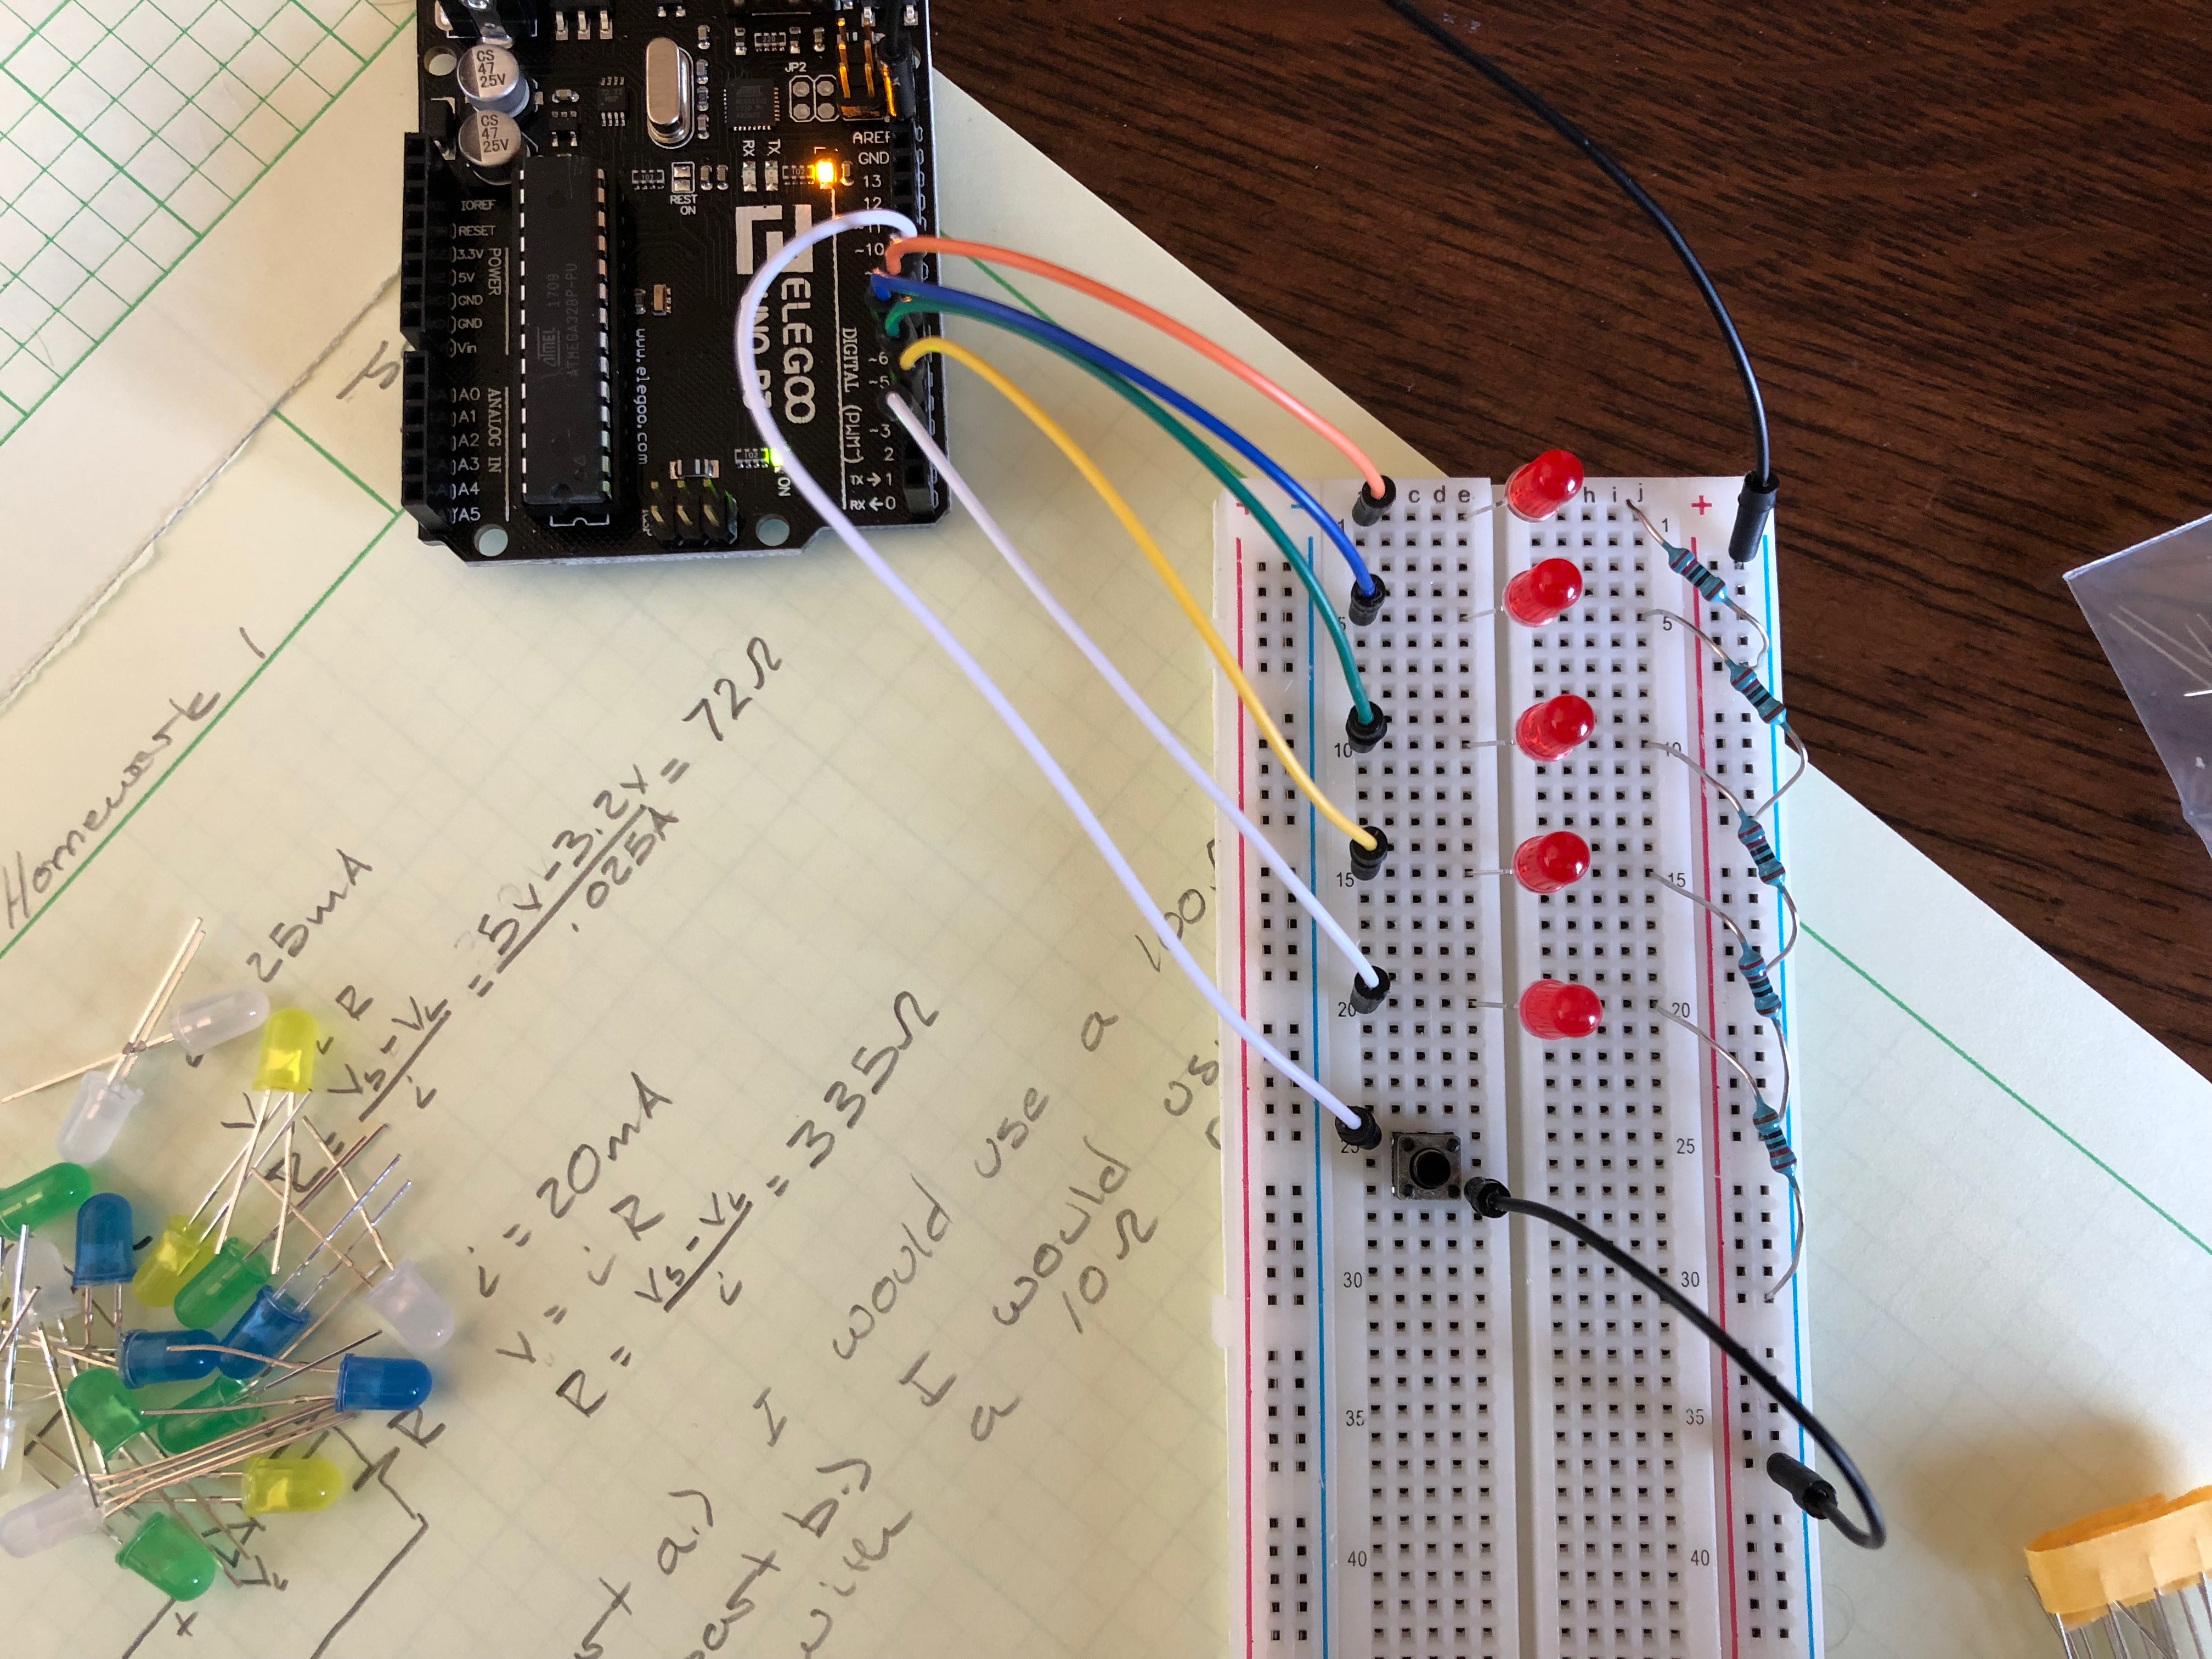 Homework 1
25mA
R
R = Vs - VL / i = 5V - 3.2V / .025A = 72Ω
i = 20mA
V = iR
R = Vs - VL / i = 335Ω
R
a.) I would use a 100Ω
b.) I would us
with a 10Ω
A5
A4
A3
A2
A1
A0
ANALOG IN
Vin
GND
GND
5V
3.3V
RESET
IOREF
POWER
CS
47
25V
CS
47
25V
ATMEL 1709
ATMEGA328P-PU
www.elegoo.com
ON
UNO R3
ELEGOO
RX
TX
L
JP2
DIGITAL (PWM~)
RX←0
TX→1
2
~3
~5
~6
~10
12
13
GND
AREF
40
35
30
25
20
15
10
5
1
c
d
e
h
i
j
40
35
30
25
20
15
10
5
1
+
-
+